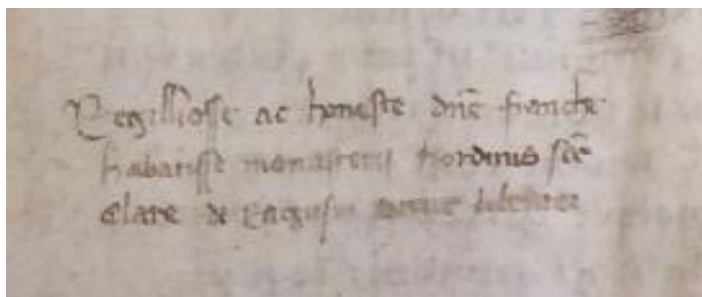 Regilliosse ac honeste dn̄e franche
habatisse monasterii hordinis sc̄e
Clare de Ragusio